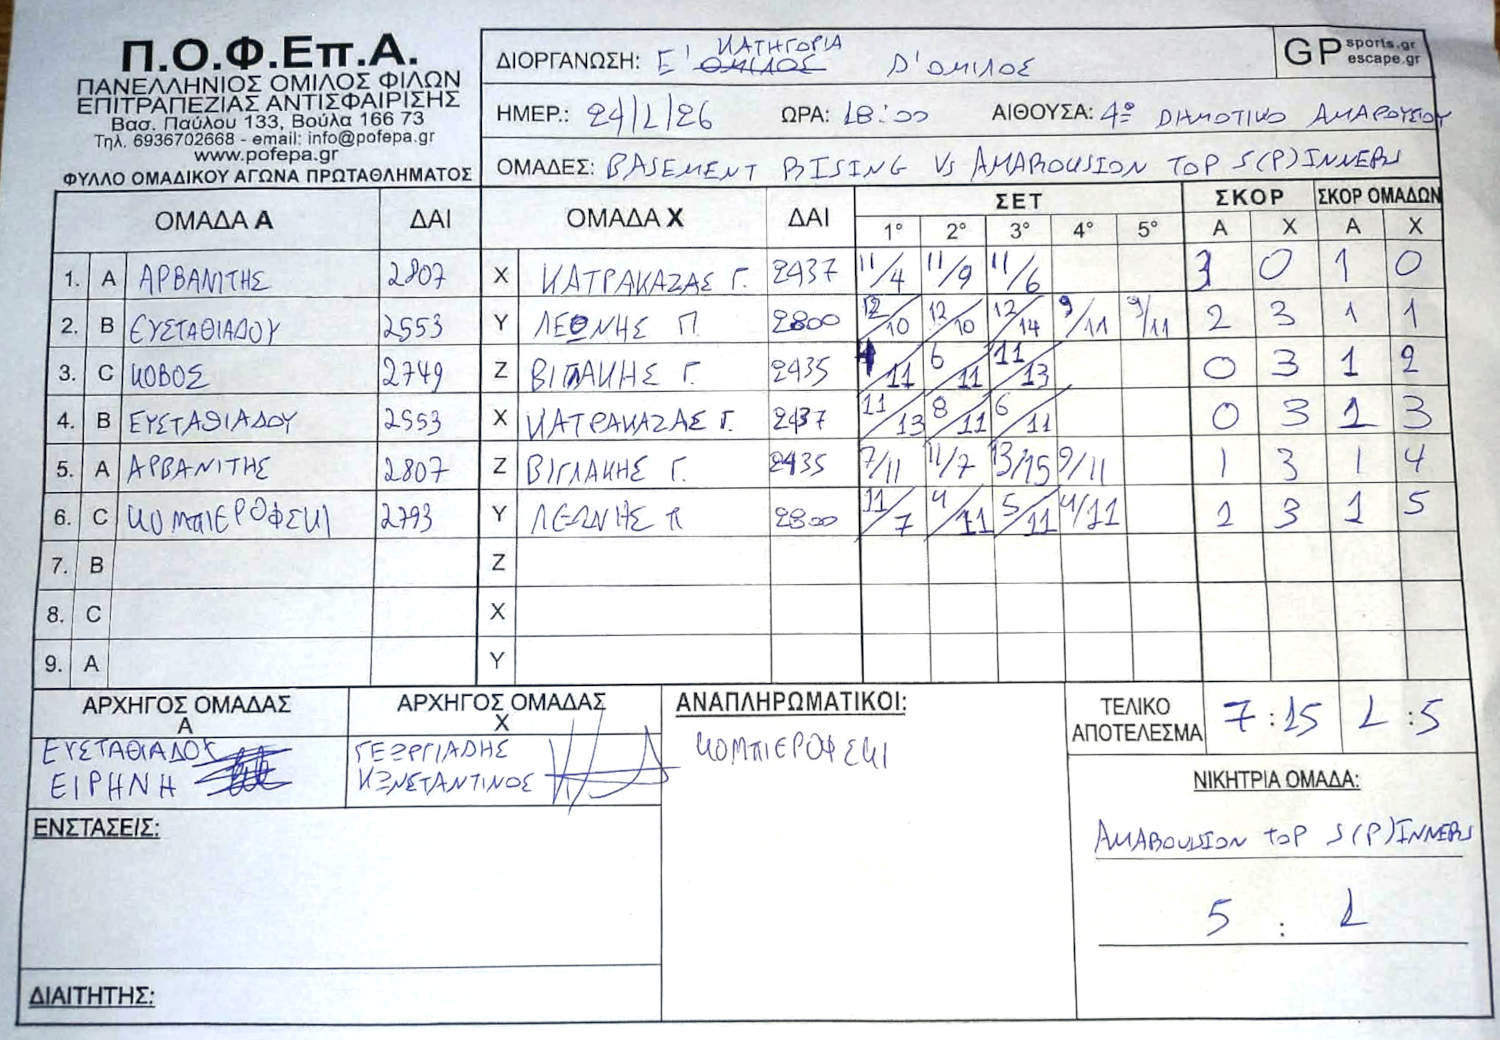 Π.Ο.Φ.Επ.Α.
ΠΑΝΕΛΛΗΝΙΟΣ ΟΜΙΛΟΣ ΦΙΛΩΝ
ΕΠΙΤΡΑΠΕΖΙΑΣ ΑΝΤΙΣΦΑΙΡΙΣΗΣ
Βασ. Παύλου 133, Βούλα 166 73
Τηλ. 6936702668 - email: info@pofepa.gr
www.pofepa.gr
ΦΥΛΛΟ ΟΜΑΔΙΚΟΥ ΑΓΩΝΑ ΠΡΩΤΑΘΛΗΜΑΤΟΣ
ΔΙΟΡΓΑΝΩΣΗ: Ε' ΚΑΤΗΓΟΡΙΑ Δ' ΟΜΙΛΟΣ
GP sports.gr
escape.gr
ΗΜΕΡ.: 24/1/26 ΩΡΑ: 18:00 ΑΙΘΟΥΣΑ: 4ο ΔΗΜΟΤΙΚΟ ΑΜΑΡΟΥΣΙΟΥ
ΟΜΑΔΕΣ: BASEMENT RISING VS AMAROUSION TOP S(P)INNERS
ΟΜΑΔΑ Α ΔΑΙ ΟΜΑΔΑ Χ ΔΑΙ ΣΕΤ ΣΚΟΡ ΣΚΟΡ ΟΜΑΔΩΝ
1° 2° 3° 4° 5° Α Χ Α Χ
1. A ΑΡΒΑΝΙΤΗΣ 2807 X ΚΑΤΡΑΚΑΖΑΣ Γ. 2437 11/4 11/9 11/6 3 0 1 0
2. B ΕΥΣΤΑΘΙΑΔΟΥ 2553 Y ΛΕΩΝΗΣ Π. 2800 12/10 12/10 12/14 9/11 9/11 2 3 1 1
3. C ΚΟΒΟΣ 2749 Z ΒΙΓΛΑΚΗΣ Γ. 2435 /11 6/11 11/13 0 3 1 2
4. B ΕΥΣΤΑΘΙΑΔΟΥ 2553 X ΚΑΤΡΑΚΑΖΑΣ Γ. 2437 11/13 8/11 6/11 0 3 1 3
5. A ΑΡΒΑΝΙΤΗΣ 2807 Z ΒΙΓΛΑΚΗΣ Γ. 2435 7/11 11/7 13/15 9/11 1 3 1 4
6. C ΚΟΜΠΙΕΡΟΦΣΚΙ 2793 Y ΛΕΩΝΗΣ Π 2800 11/7 4/11 5/11 4/11 1 3 1 5
7. B Z
8. C X
9. A Y
ΑΡΧΗΓΟΣ ΟΜΑΔΑΣ
Α
ΕΥΣΤΑΘΙΑΔΟΥ
ΕΙΡΗΝΗ
ΑΡΧΗΓΟΣ ΟΜΑΔΑΣ
Χ
ΓΕΩΡΓΙΑΔΗΣ
ΚΩΝΣΤΑΝΤΙΝΟΣ
ΑΝΑΠΛΗΡΩΜΑΤΙΚΟΙ:
ΚΟΜΠΙΕΡΟΦΣΚΙ
ΤΕΛΙΚΟ
ΑΠΟΤΕΛΕΣΜΑ 7 : 15 1 : 5
ΝΙΚΗΤΡΙΑ ΟΜΑΔΑ:
AMAROUSION TOP S(P)INNERS
5 : 1
ΕΝΣΤΑΣΕΙΣ:
ΔΙΑΙΤΗΤΗΣ: